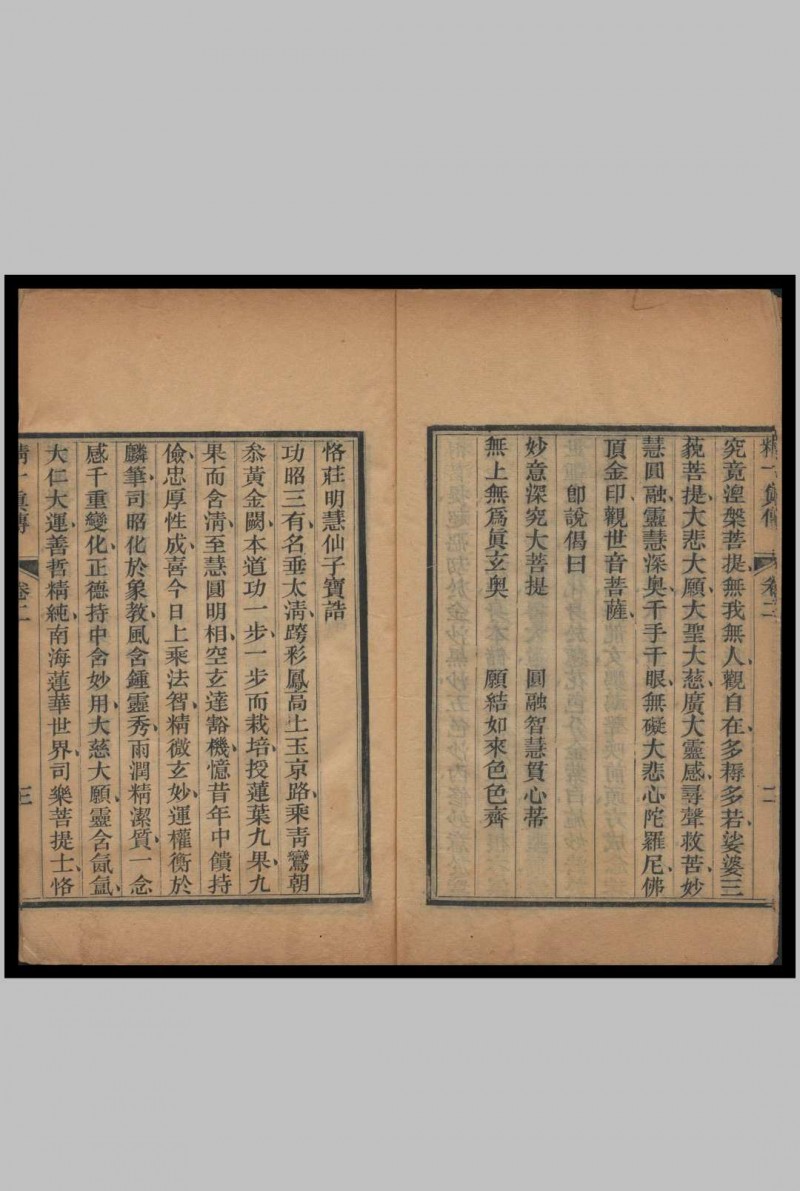 精一眞傳 卷二 二
究竟湼槃菩提、無我無人、觀自在、多耨多若、娑婆三
藐菩提、大悲大願、大聖大慈、廣大靈感、尋聲救苦、妙
慧圓融、靈慧深奧、千手千眼、無礙大悲心陀羅尼、佛
頂金印、觀世音菩薩、
卽說偈曰
妙意深究大菩提 圓融智慧貫心蒂
無上無爲眞玄奧 願結如來色色齊
恪莊明慧仙子寶誥
功昭三有、名垂太淸、跨彩鳳、高上玉京路、乘靑鸞、朝
叅黃金闕、本道功一步、一步而栽培、授蓮葉九果、九
果而含淸、至慧圓明相、空玄達豁機、憶昔年中饋持
儉、忠厚性成、喜今日上乘法智、精微玄妙、運權衡於
麟筆、司昭化於象教、風含鍾靈秀、雨潤精潔質、一念
感千重變化、正德持中含妙用、大慈大願、靈含氤氳、
大仁大運、善哲精純、南海蓮華世界、司樂菩提士、恪
精一眞傳 卷二 三